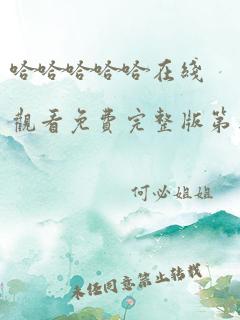 哈哈哈哈哈在线
觀看免費完整版第
何必姐姐
未经同意禁止转载